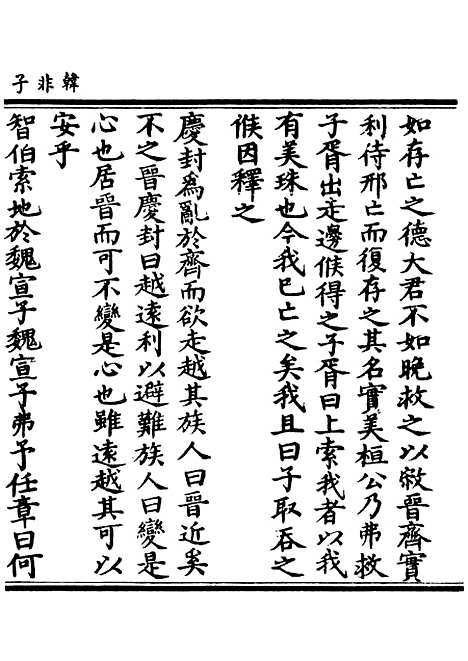 韓非子
如存亡之德大君不如晚救之以敝晉齊實
利待邢亡而復存之其名實美桓公乃弗救
子胥出走邊候得之子胥曰上索我者以我
有美珠也今我已亡之矣我且曰子取吞之
候因釋之
慶封為亂於齊而欲走越其族人曰晉近奚
不之晉慶封曰越遠利以避難族人曰變是
心也居晉而可不變是心也雖遠越其可以
安乎
智伯索地於魏宣子魏宣子弗予任章曰何